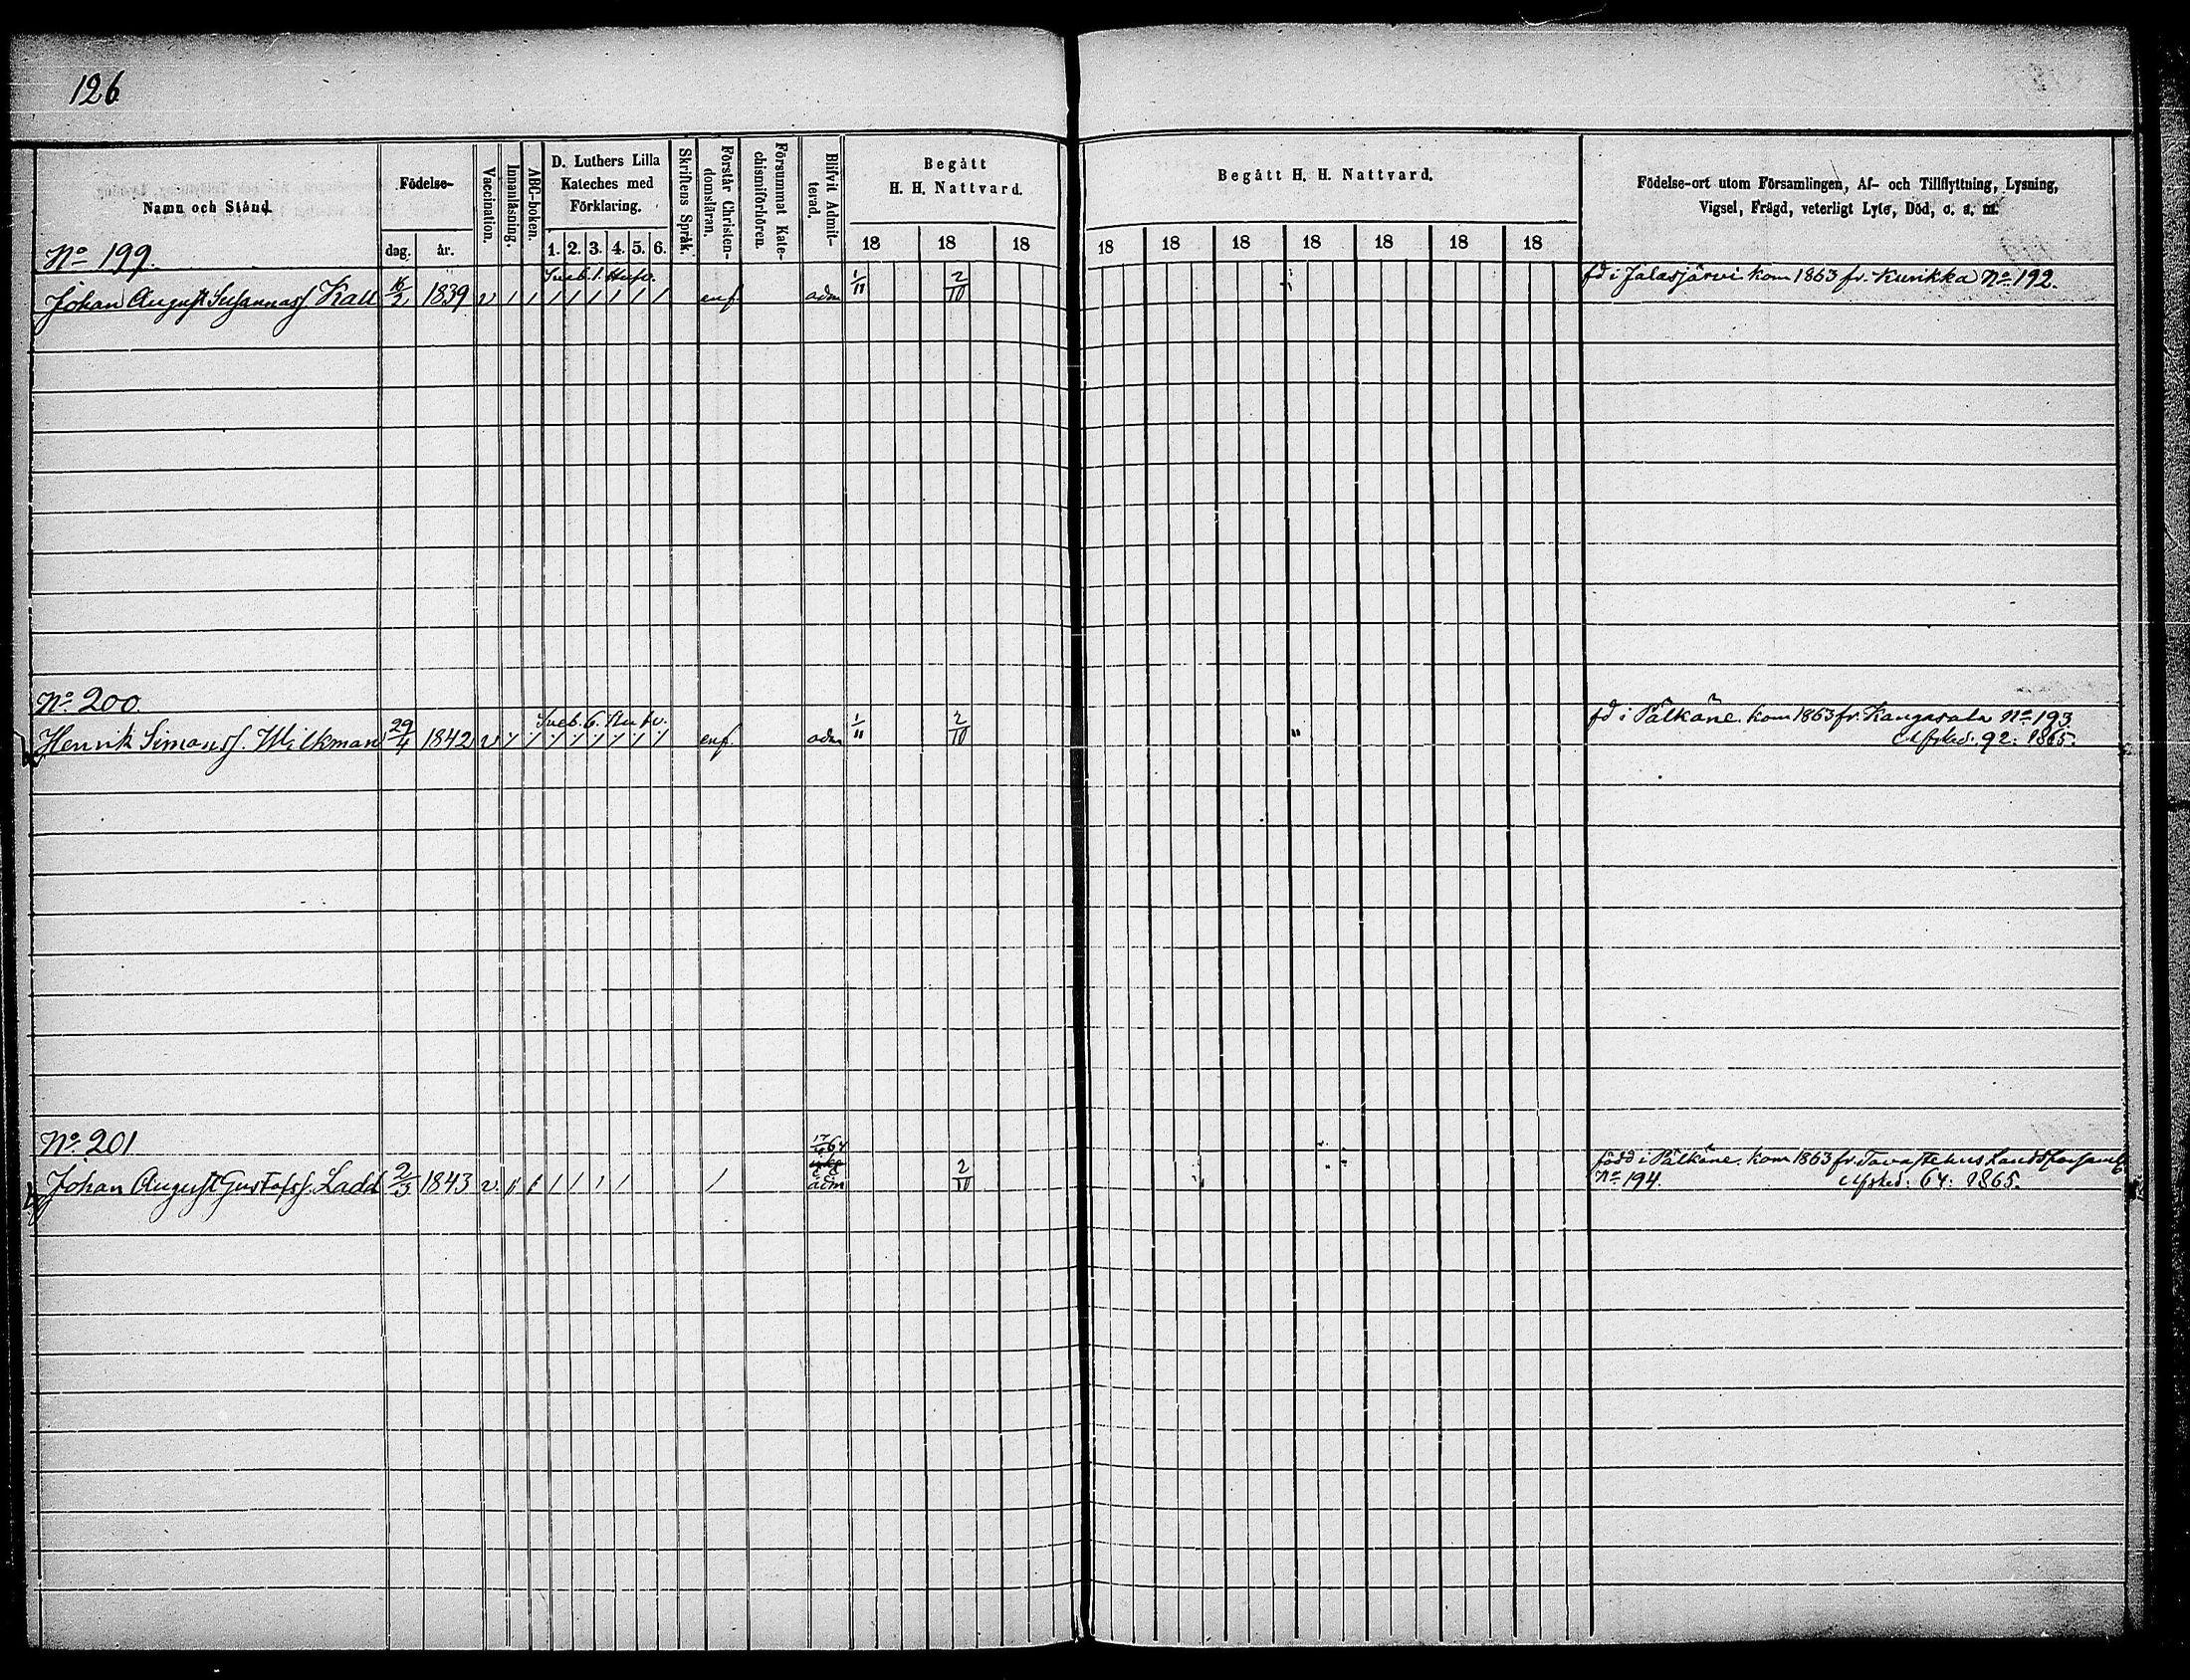 126
Namn och Stånd.
Födelse-
dag. år.
Vaccination.
Innanläsning.
ABC-boken.
D. Luthers Lilla
Kateches med
Förklaring.
1. 2. 3. 4. 5. 6.
Skriftens Språk.
Förstår Christen-
domsläran.
Försummat Kate-
chismiförhören.
Blifvit Admit-
terad.
Begått
H. H. Nattvard.
18 18 18
Begått H. H. Nattvard.
18 18 18 18 18 18 18
Födelse-ort utom Församlingen, Af- och Tillflyttning, Lysning,
Vigsel, Frägd, veterligt Lyte, Död, o. s. m.
No 199.
Sveb. 1. Hufv.
Johan August Susannass Kall 16/2 1839 v / / / / / / / / enf adm 1/11 2/10 fd i Jalasjärvi kom 1863 fr. Kurikka No 192.
No 200.
Sveb. 6. Hufv.
Henrik Simonss. Milkman 29/4 1842 v / / / / / / / / enf. adm 1/11 2/10 " fd i Pälkäne. kom 1863 fr. Kangasala No 193
Afsked. 92. 1865.
No 201
64
Johan August Gustafss. Ladd 2/3 1843 v. / / / / / / / adm 2/10 född i Pälkäne. kom 1863 fr. Tavastehus Landsförsaml
No 194. Afsked: 64: 1865.